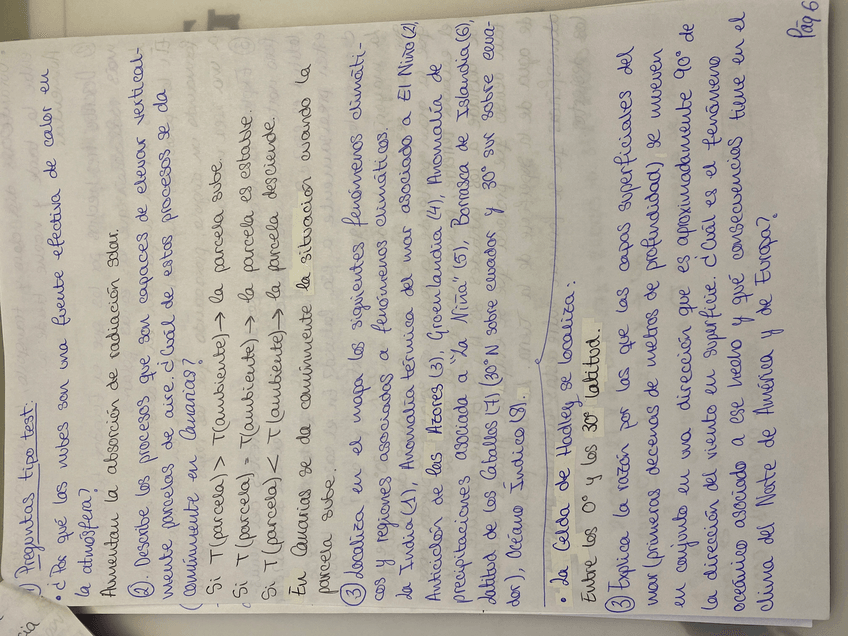 1) Preguntas tipo test:
• ¿Por qué las nubes son una fuente efectiva de calor en
la atmósfera?
Aumentan la absorción de radiación solar.
②. Describe los procesos que son capaces de elevar vertical-
mente parcelas de aire. ¿Cuál de estos procesos se da
comúnmente en Canarias?
- Si T(parcela) > T(ambiente) → la parcela sube.
- Si T(parcela) = T(ambiente) → la parcela es estable.
- Si T(parcela) < T(ambiente) → la parcela desciende.
En Canarias se da comúnmente la situación cuando la
parcela sube.
③ Localiza en el mapa los siguientes fenómenos climáti-
cos y regiones asociadas a fenómenos climáticos.
La India (1), Anomalía térmica del mar asociado a El Niño (2),
Anticiclón de las Azores (3), Groenlandia (4), Anomalía de
precipitaciones asociada a "La Niña" (5), Borrasca de Islandia (6),
Latitud de los Caballos (7) (30° N sobre ecuador y 30° sur sobre ecua-
dor), Océano Índico (8).
• La Celda de Hadley se localiza:
Entre los 0° y los 30° latitud.
③ Explica la razón por las que las capas superficiales del
mar (primeras decenas de metros de profundidad) se mueven
en conjunto en una dirección que es aproximadamente 90° de
la dirección del viento en superficie. ¿Cuál es el fenómeno
oceánico asociado a ese hecho y qué consecuencias tiene en el
clima del Norte de América y de Europa?
Pág 6